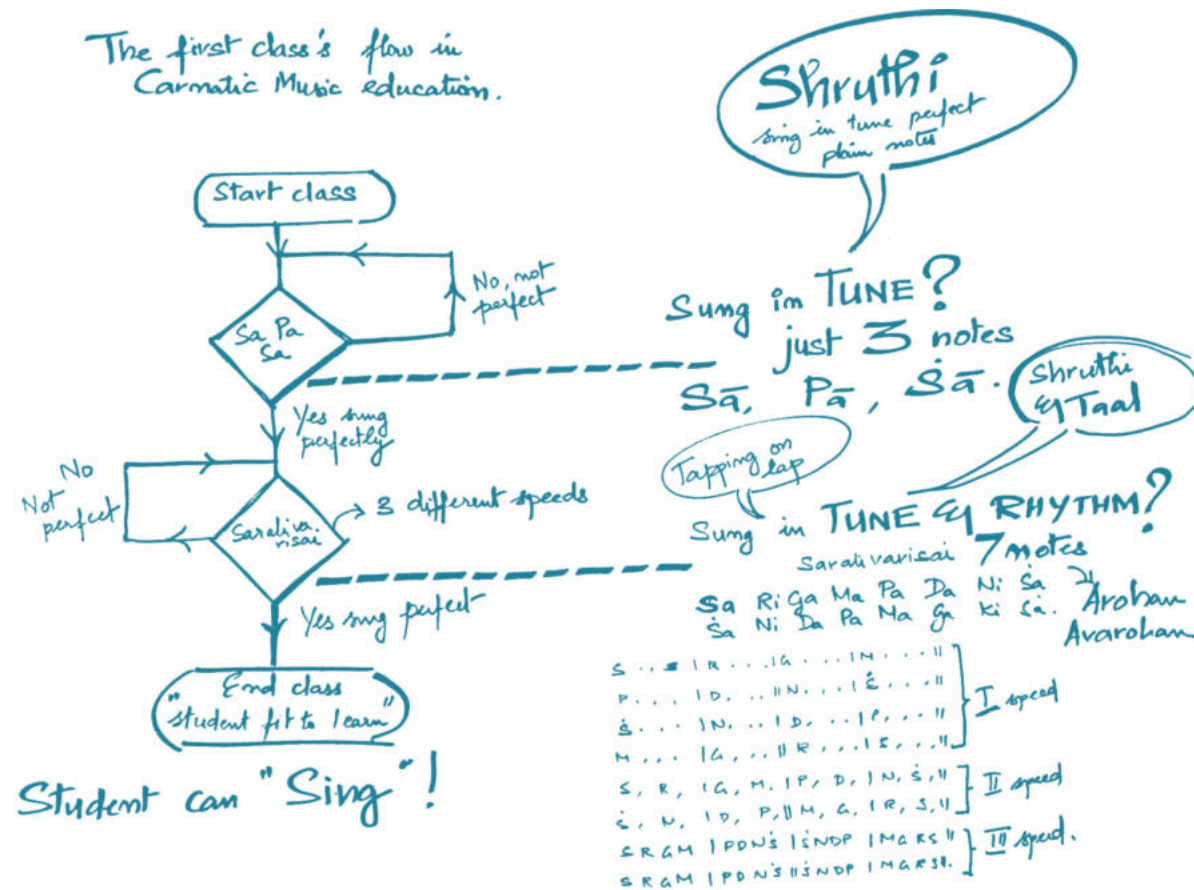 The first class's flow in
Carnatic Music education.
Start class
Sa Pa
Sa
No, not
perfect
Yes sung
perfectly
No
Not
perfect
Sarali va
risai
3 different speeds
Yes sung perfect
End class
"student fit to learn"
Student can "Sing"!
Shruthi
sing in tune perfect
plain notes
Sung in TUNE?
just 3 notes
Sā, Pā, Ṡā.
Shruthi
& Taal
Tapping on
lap
Sung in TUNE & RHYTHM?
Saralivarisai 7 notes
Sa Ri Ga Ma Pa Da Ni Ṡa
Ṡa Ni Da Pa Ma Ga Ri Sa.
Arohan
Avarohan
S . , s | R . . . | G . . . | M . . . ||
P . . . | D . . . || N . . . | Ṡ . . . ||
Ṡ . . . | N . . . | D . . . | P . . . ||
M , . . | G , . . || R , . . | S , . . ||
I speed
S, R, | G, M, | P, D, | N, Ṡ, ||
Ṡ, N, | D, P, || M, G, | R, S, ||
II speed
S R G M | P D N Ṡ | Ṡ N D P | M G R S ||
S R G M | P D N Ṡ || Ṡ N D P | M G R S ||.
III speed.